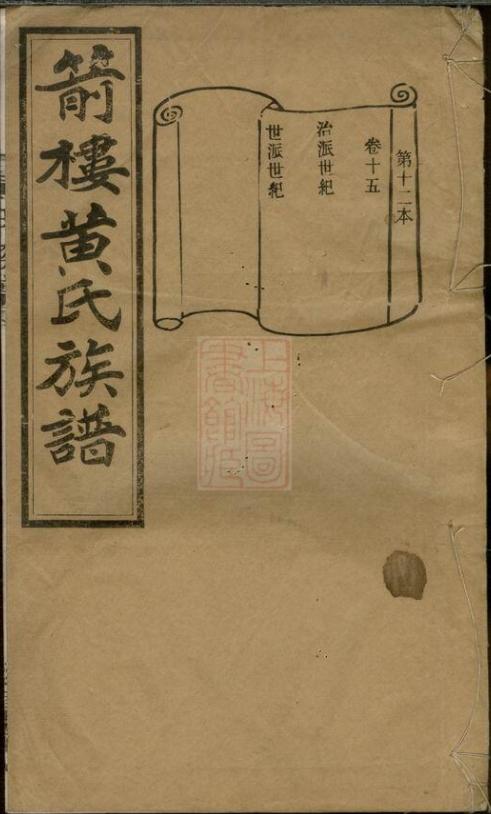 箭樓黄氏族譜
第十二本
卷十五
治派世紀
世派世紀
上海圖
書館藏